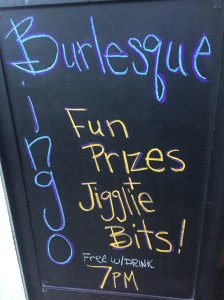 Burlesque
ingo
Fun
Prizes
+
Jigglie
Bits!
FREE W/DRINK
7PM